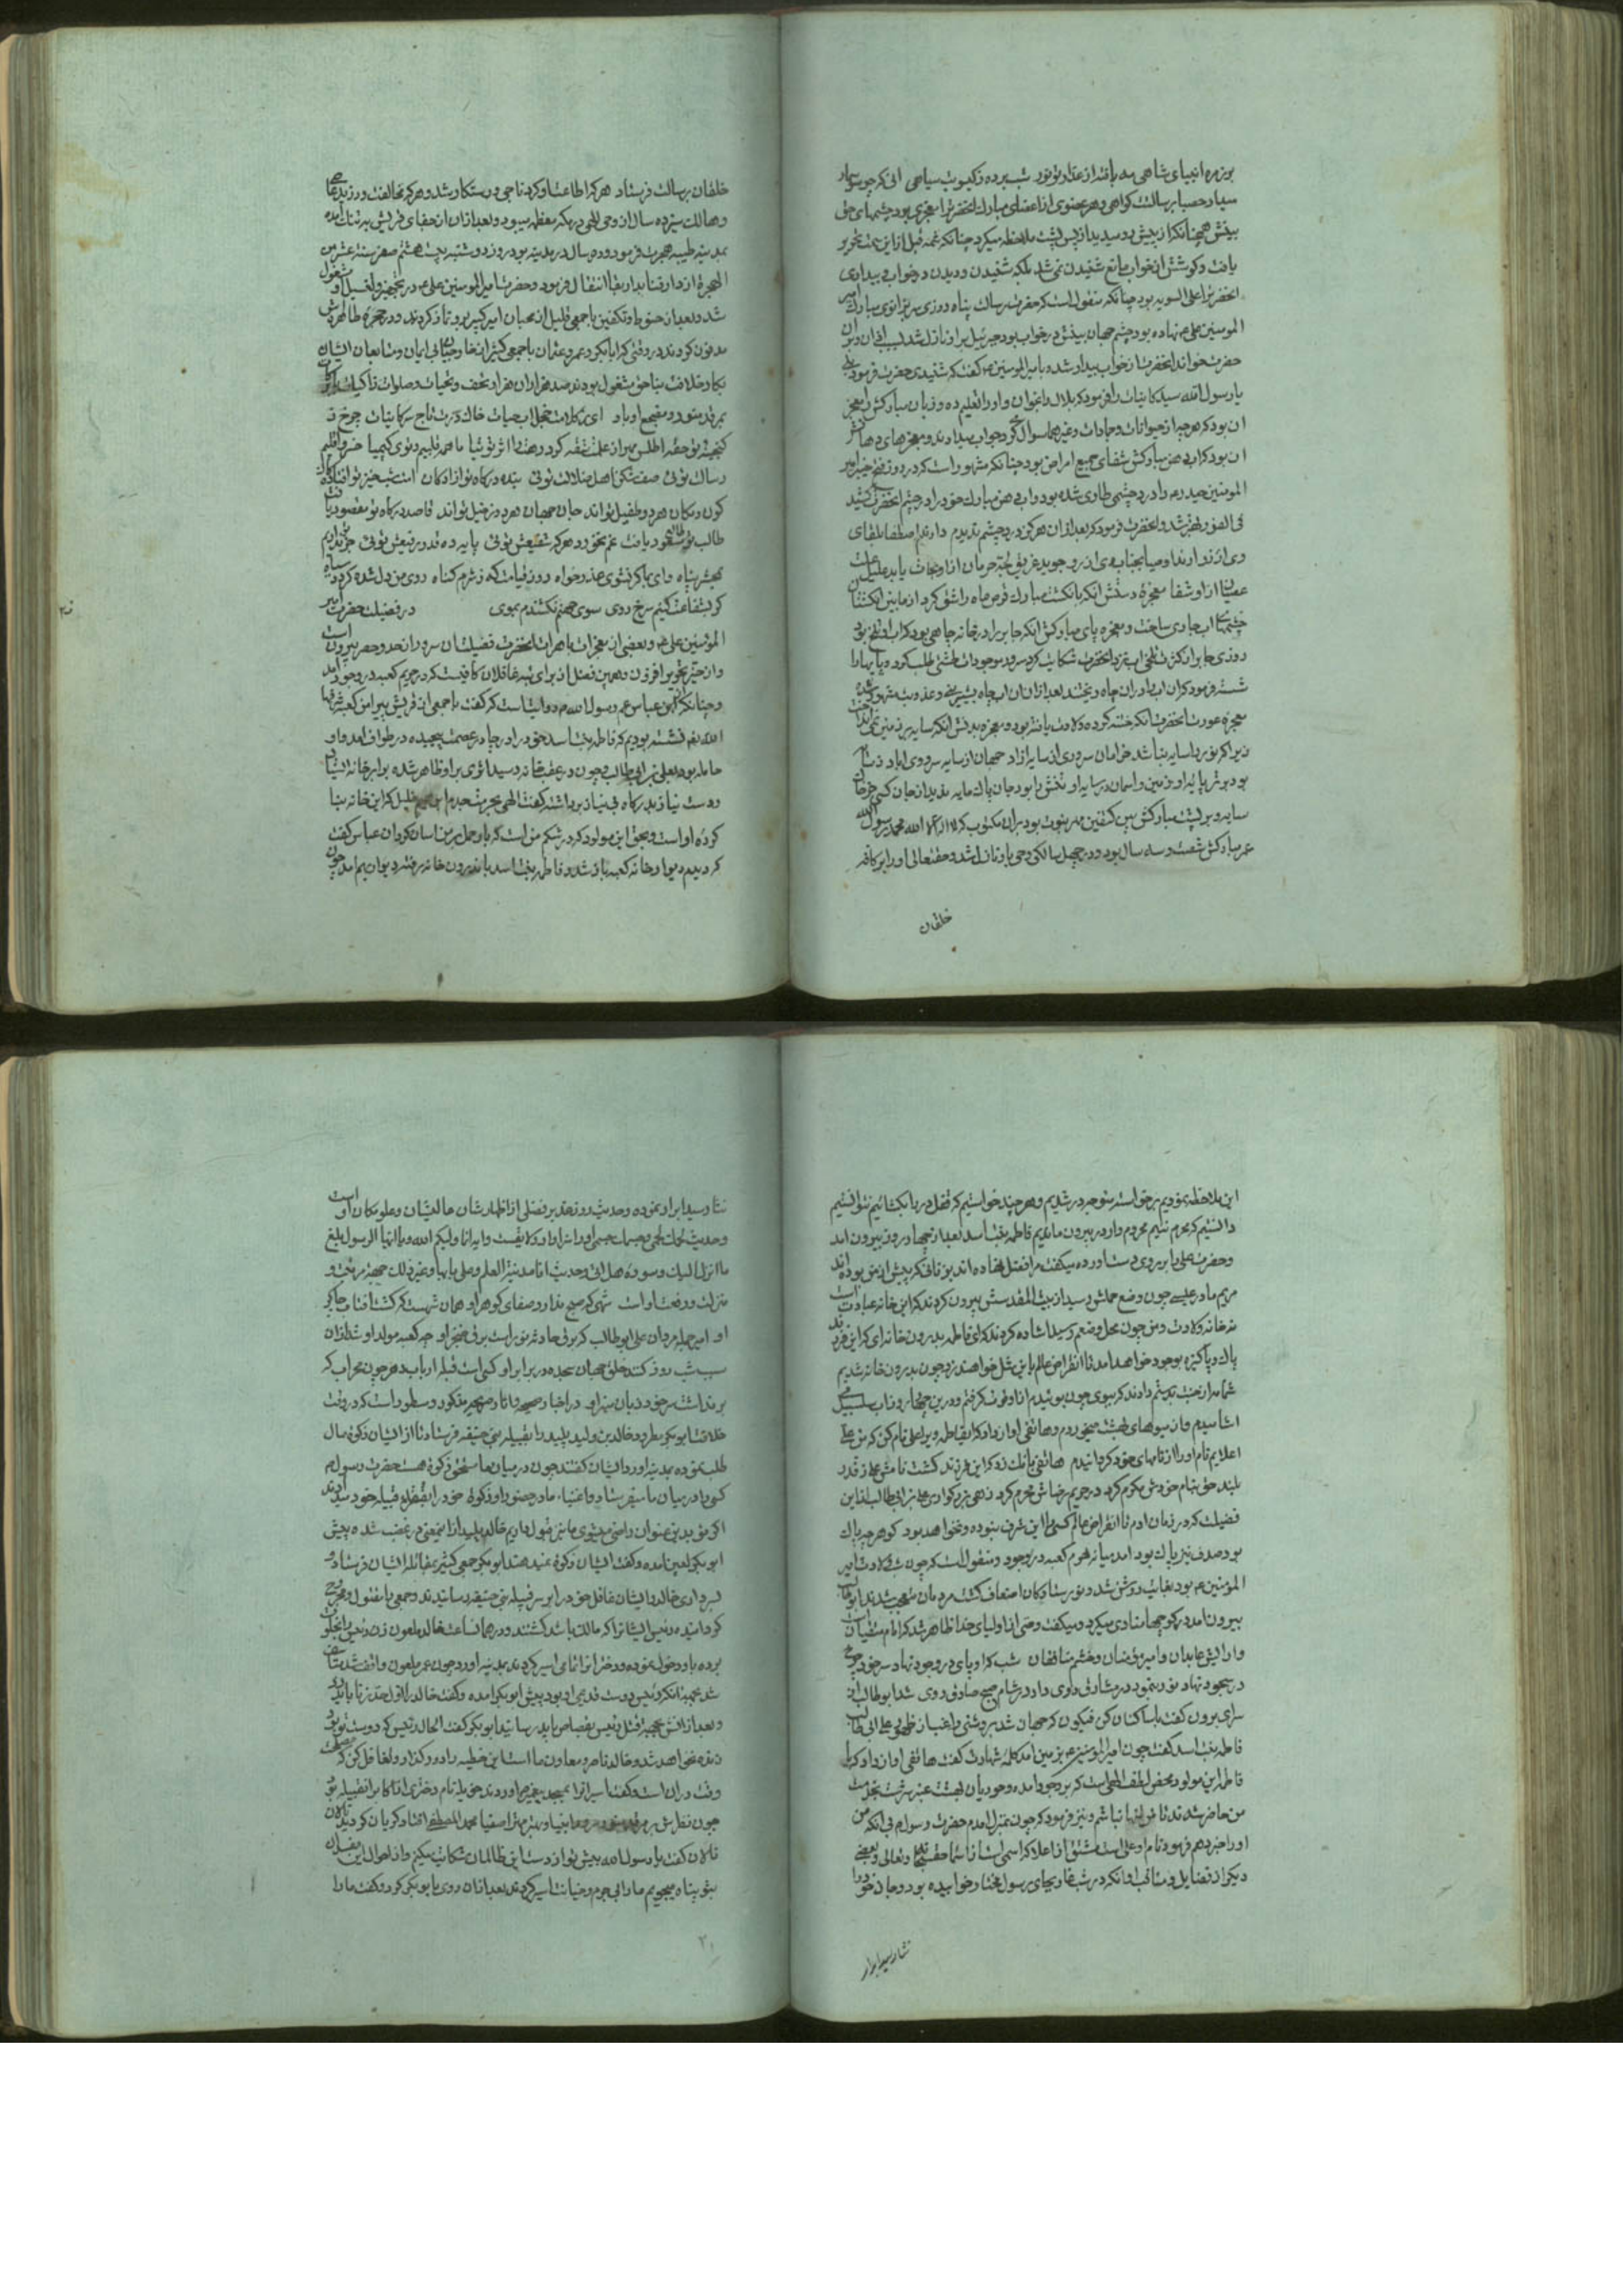 بر زمره انبیای شاهی مه یافته از عذار تو نور شب برده ز کیسویت سیاهی انی که چو سوسمار
سیار حصبا برسالت کواهی و هر عضوی از اعضای مبارک انحضرترا معجزی بود چشمهای حق
بینش همچنانکه از پیش رو میدید از پس پشت ملاحظه میکرد چنانکه شمه قبل از این سمت تحریر
یافت و کوشش از خواب مانع شنیدن نمی شد بلکه شنیدن و دیدن در خواب و بیداری
انحضرترا علی السویه بود چنانکه منقول است که حضرت رسالت پناه روزی سر بزانوی مبارک امیر
المومنین علی ع نهاده بود چشم جهان بینش در خواب بود جبرئیل بر او نازل شد
حضرت خواند انحضرت از خواب بیدار شده با میرالمومنین ع گفت که شنیدی حضرت فرمود بلی
یا رسول الله سید کاینات را فرمود که بلال را بخوان و او را تعلیم ده و زبان مبارکش را معجز
ان بود که هر چه از حیوانات و جمادات و غیرهما سوال کرد جواب میدادند و معجزهای دهانش
ان بود که اب دهن مبارکش شفای جمیع امراض بود چنانکه مشهور است که در روز فتح خیبر امیر
المومنین حیدر را درد چشمی طاری شده بود اب دهن مبارک خود را در چشم انحضرت کشید
فی الفور بهتر شد و انحضرت فرمود که بعد از ان هرکز درد چشم ندیدم دارند اصطفا بلقای
وی از زو ارند اوصیا بجناب وی از رو جوید غریق لجه حرمان ازو نجات یابد علیل علت
عصیان ازو شفا معجزه دستش انکه بانکشت مبارک قرص ماه را شق کرد از مابین انکشتان
چشمهای اب جاری ساخت و معجزه پای مبارکش انکه جابر را در خانه چاهی بود که اب او تلخ بود
روزی جابر از کثرت تلخی اب نزد انحضرت شکایت کرد سرور موجودات طشتی طلب کرد و پایها را
شسته فرمود که ان اب را در ان چاه ریختند بعد از ان ان اب چاه بشیرینی و عذوبت مشهور شد
معجزه عورت انحضرت انکه ختنه کرده ولادت یافته بود و معجزه بدنش انکه سایه بر زمین نمی انداخت
زیرا که نور را سایه نباشد خرامان سروری از سایه ازاد جهان از سایه سرو وی اباد
بود برتر پایه او زمین و اسمان در سایه او تنش را بود جان پاک مایه ندید از جان کسی هرکز
سایه و بر پشت مبارکش بین کتفین مهر نبوت بود بران مکتوب که لا اله الا الله محمد رسول الله
عمر مبارکش شصت و سه سال بود و در چهل سالکی وحی باو نازل شد و حقتعالی او را بر کافه
خلقان
خلقان برسالت فرستاد هر که اطاعت او کرد ناجی و رستکار شد و هر که مخالفت ورزید
و هالک سیزده سال از وحی الهی در مکه معظمه میبود و بعد از ان از جفای قریش به تنک امده
بمدینه طیبه هجرت فرمود و ده سال در مدینه بود روز دوشنبه بیست هشتم صفر سنه عشر من
الهجرة از دار فنا بدار بقا انتقال فرمود و حضرت امیرالمومنین علی ع در تجهیز و تغسیل او مشغول
شد و بعد از حنوط و تکفین با جمعی قلیل از محبان امیر کبیر بر وی نماز کردند و در حجره طاهره اش
مدفون کردند در وقتی که ابابکر و عمر و عثمان با جمعی کثیر از خارجیان بی ایمان و متابعان ایشان
بکار خلافت بناحق مشغول بودند صد هزاران هزار تحف و تحیات و صلوات زاکیات
بمرقد منور و مضجع او باد ای خاک درت تاج سر کاینات چرخ ز
کنجینه تو حقه اطلس
رسالت توئی صف شکن اهل ضلالت توئی بنده درکاه تو ازادکان امت شب خیز تو افتادکان
کون و مکان هر دو طفیل تواند جان جهان هر دو ز خیل تواند قاصد درکاه تو مقصود یافت
طالب تو مقصود یافت غم نخورد هر که شفیعش توئی پایه ده قدر رفیعش توئی جز تو نداریم
بمحشر پناه وای بما کر نشوی عذرخواه روز قیامت که ز شرم کناه روی من دل شده کردد سیاه
کر بشفاعت کنیم سرخ روی سوی جهنم نکشندم بموی در فضیلت حضرت امیر
المؤمنین علی ع و بعضی از معجزات باهرات انحضرت فضیلت ان سرور از حد و حصر بیرون است
و از حیز تحریر افزون و همین فضل از برای تنبه غافلان کافیست که در حریم کعبه در وجود امد
و چنانکه از ابن عباس عم رسول الله ص روایت است که گفت با جمعی از قریش پیرامن کعبه شرفها
الله نشسته بودیم که فاطمه بنت اسد خود را در چادر عصمت پیچیده در طواف امد و او
حامله بود بعلی بن ابی طالب و چون در عقب خانه رسید اثری بر او ظاهر شده برابر خانه ایستاد
و دست نیاز بدرکاه بی نیاز برداشته گفت الهی بحرمت جدم ابراهیم خلیل که این خانه بنا
کرده او است و بحق این مولود که در شکم من است که بار حمل بر من اسان کردان عباس گفت
که دیدم دیوار خانه کعبه باز شد و فاطمه بنت اسد باندرون خانه رفته دیوار بهم امد چون
این ملاحظه نمودیم برخواسته متوجه در شدیم و هر چند خواستیم که قفل در را بکشائیم نتوانستیم
دانستیم که محرم نئیم محروم وار در بیرون ماندیم فاطمه بنت اسد بعد از چهار روز بیرون امد
و حضرت علی را بر روی دست اورده میکفت مرا فضل نهاده اند بر زنانی که پیش از من بوده اند
مریم مادر عیسی چون وضع حملش رسید از بیت المقدسش بیرون کردند که این خانه عبادت است
نه خانه ولادت و من چون محل وضعم رسید اشاره کردند که ای فاطمه بدرون خانه ای که این فرزند
پاک و پاکیزه بوجود خواهد امد تا انقراض عالم باین مثل نخواهند زد چون بدرون خانه شدیم
شمامه از بهشت بدستم دادند که ببوی چون بوئیدم از او قوت گرفتم و در این چهار روز اب سلسبیل می
اشامیدم و از میوهای بهشت میخوردم و هاتفی اواز داد که ای فاطمه ویرا علی نام کن که من علی
اعلایم نام او را از نامهای خود کردانیدم هاتفی بانک زد که این فرزند کشت نامش علی ز قدر
بلند حق بنام خودش مکرم کرد در حریم رضاش محرم کرد زهی بزرکواری علی بن ابی طالب که این
فضیلت که در زمان ادم تا انقراض عالم کسی را این شرف نبوده و نخواهد بود کوهر چو پاک
بود صدف نیز پاک بود امد میانه حرم کعبه در وجود و منقول است که چون شب ولادت امیر
المؤمنین ع بود بغایت روشن شد و نور ستارکان اضعاف گشت مردمان متعجب شدند ابوطالب
بیرون امد در کوچها منادی میکرد و میکفت وصی از اولیای خدا ظاهر شد که امام متقیان است
و ارایش عابدان و امیر مؤمنان و خشم منافقان شب کو پای در وجود نهاد سر خود چرخ
در سجود نهاد نور بنمود در مشارق روی داد در شام صبح صادق روی شد ابوطالب از
سرای برون گفت با ساکنان کن فیکون که جهان شد بروشنی راغب از ظهور علی ابی طالب
فاطمه بنت اسد گفت چون امیرالمومنین ع بزمین امد کلمه شهادت گفت هاتفی اواز داد که یا
فاطمه این مولود محض لطف الهی است که بر وجود امده و حوریان بهشت عنبر سرشت بخدمت
من حاضر شدند تا من تنها نباشم و نیز فرمود که چون بمنزل امدم حضرت رسول ص بی انکه من
او را خبر دهم فرمود نام او علی است مشتق از اعلا که اسمی است از اسماء حق سبحانه و تعالی و بعضی
دیکر از فضایل و مناقب او انکه در شب غار بجای رسول خدا خوابیده بود و جان خود را
نثار سید ابرار
نثار سید ابرار نموده و حدیث روز غدیر فضلی از اظهار شان عالیشان و علو مکان او است
و حدیث لحمک لحمی و جسمک جسمی و ایه انما ولیکم الله و یا ایها الرسول بلغ
ما انزل الیک و سوره هل اتی و حدیث انا مدینة العلم و علی بابها و غیر ذلک جهة مرتبت و
منزلت و رفعت او است شهی که صبح ندارد صفای کوهر او همان شهست که کشت افتاب چاکر
او امیر جمله مردان علی ابوطالب که برق حادثه نور است برق خنجر او چو کعبه مولد او شد از ان
سبب شب و روز کنند خلق جهان سجده در برابر او کسی است قبله ارباب دهر چون محراب که
برنداشت سر خود ز پای منبر او در اخبار صحیحه و اثار صریحه مذکور و مسطور است که در وقت
خلافت ابوبکر مطرود خالد بن ولید پلید را بقبیله بنی حنیفه فرستاد تا از ایشان زکوة مال
طلب نموده بمدینه اورد ایشان گفتند چون در میان ما مستحق زکوة هست حضرت رسول ص
کسی را در میان ما میفرستاد و اغنیاء ما در حضور او زکوة خود را بفقراء قبیله خود میدادند
اکر تو بدین عنوان راضی میشوی ما نیز قبول داریم خالد پلید از اینمعنی در غضب شده پیش
ابوبکر لعین امده و گفت ایشان زکوة نمیدهند ابوبکر جمعی کثیر بمقاتله ایشان فرستاد و
بسرداری خالد و ایشان غافل خود را بر سر قبیله بنی حنیفه رسانیدند و جمعی را مقتول و مجروح
کردانیده رئیس ایشانرا که مالک باشد کشتند و در همان ساعت خالد ملعون زن رئیس را بخلوت
برده باو دخول نموده و دخترانرا تمامی اسیر کردند بمدینه اورد چون عمر ملعون واقف شد متأسف
شد بجهة انکه رئیس دوست قدیمی او بود پیش ابوبکر امده و گفت خالد را اول حد زنا باید زد
و بعد از انش بجهة قتل رئیس بقصاص باید رسانید ابوبکر گفت الحال رئیس که دوست تو بود
زنده نخواهد شد و خالد ناصر و معاون ما است این خطیه را درگذار و تغافل کن که مصلحت
وقت در ان است و گفت اسیرانرا بمسجد پیغمبر ص اوردند خوله نام دختری از اکابر انقبیله بود
چون نظرش بر مرقد منور سرور انبیاء و بهتر و مهتر اصفیا محمد المصطفی افتاد کریان کردید
نالان گفت یا رسول الله پیش تو از دست این ظالمان شکایت میکنم و از احوال این مفسدان
بتو پناه میجویم ما را بی جرم و خیانت اسیر کردند بعد از ان روی با بوبکر کرد و گفت ما را